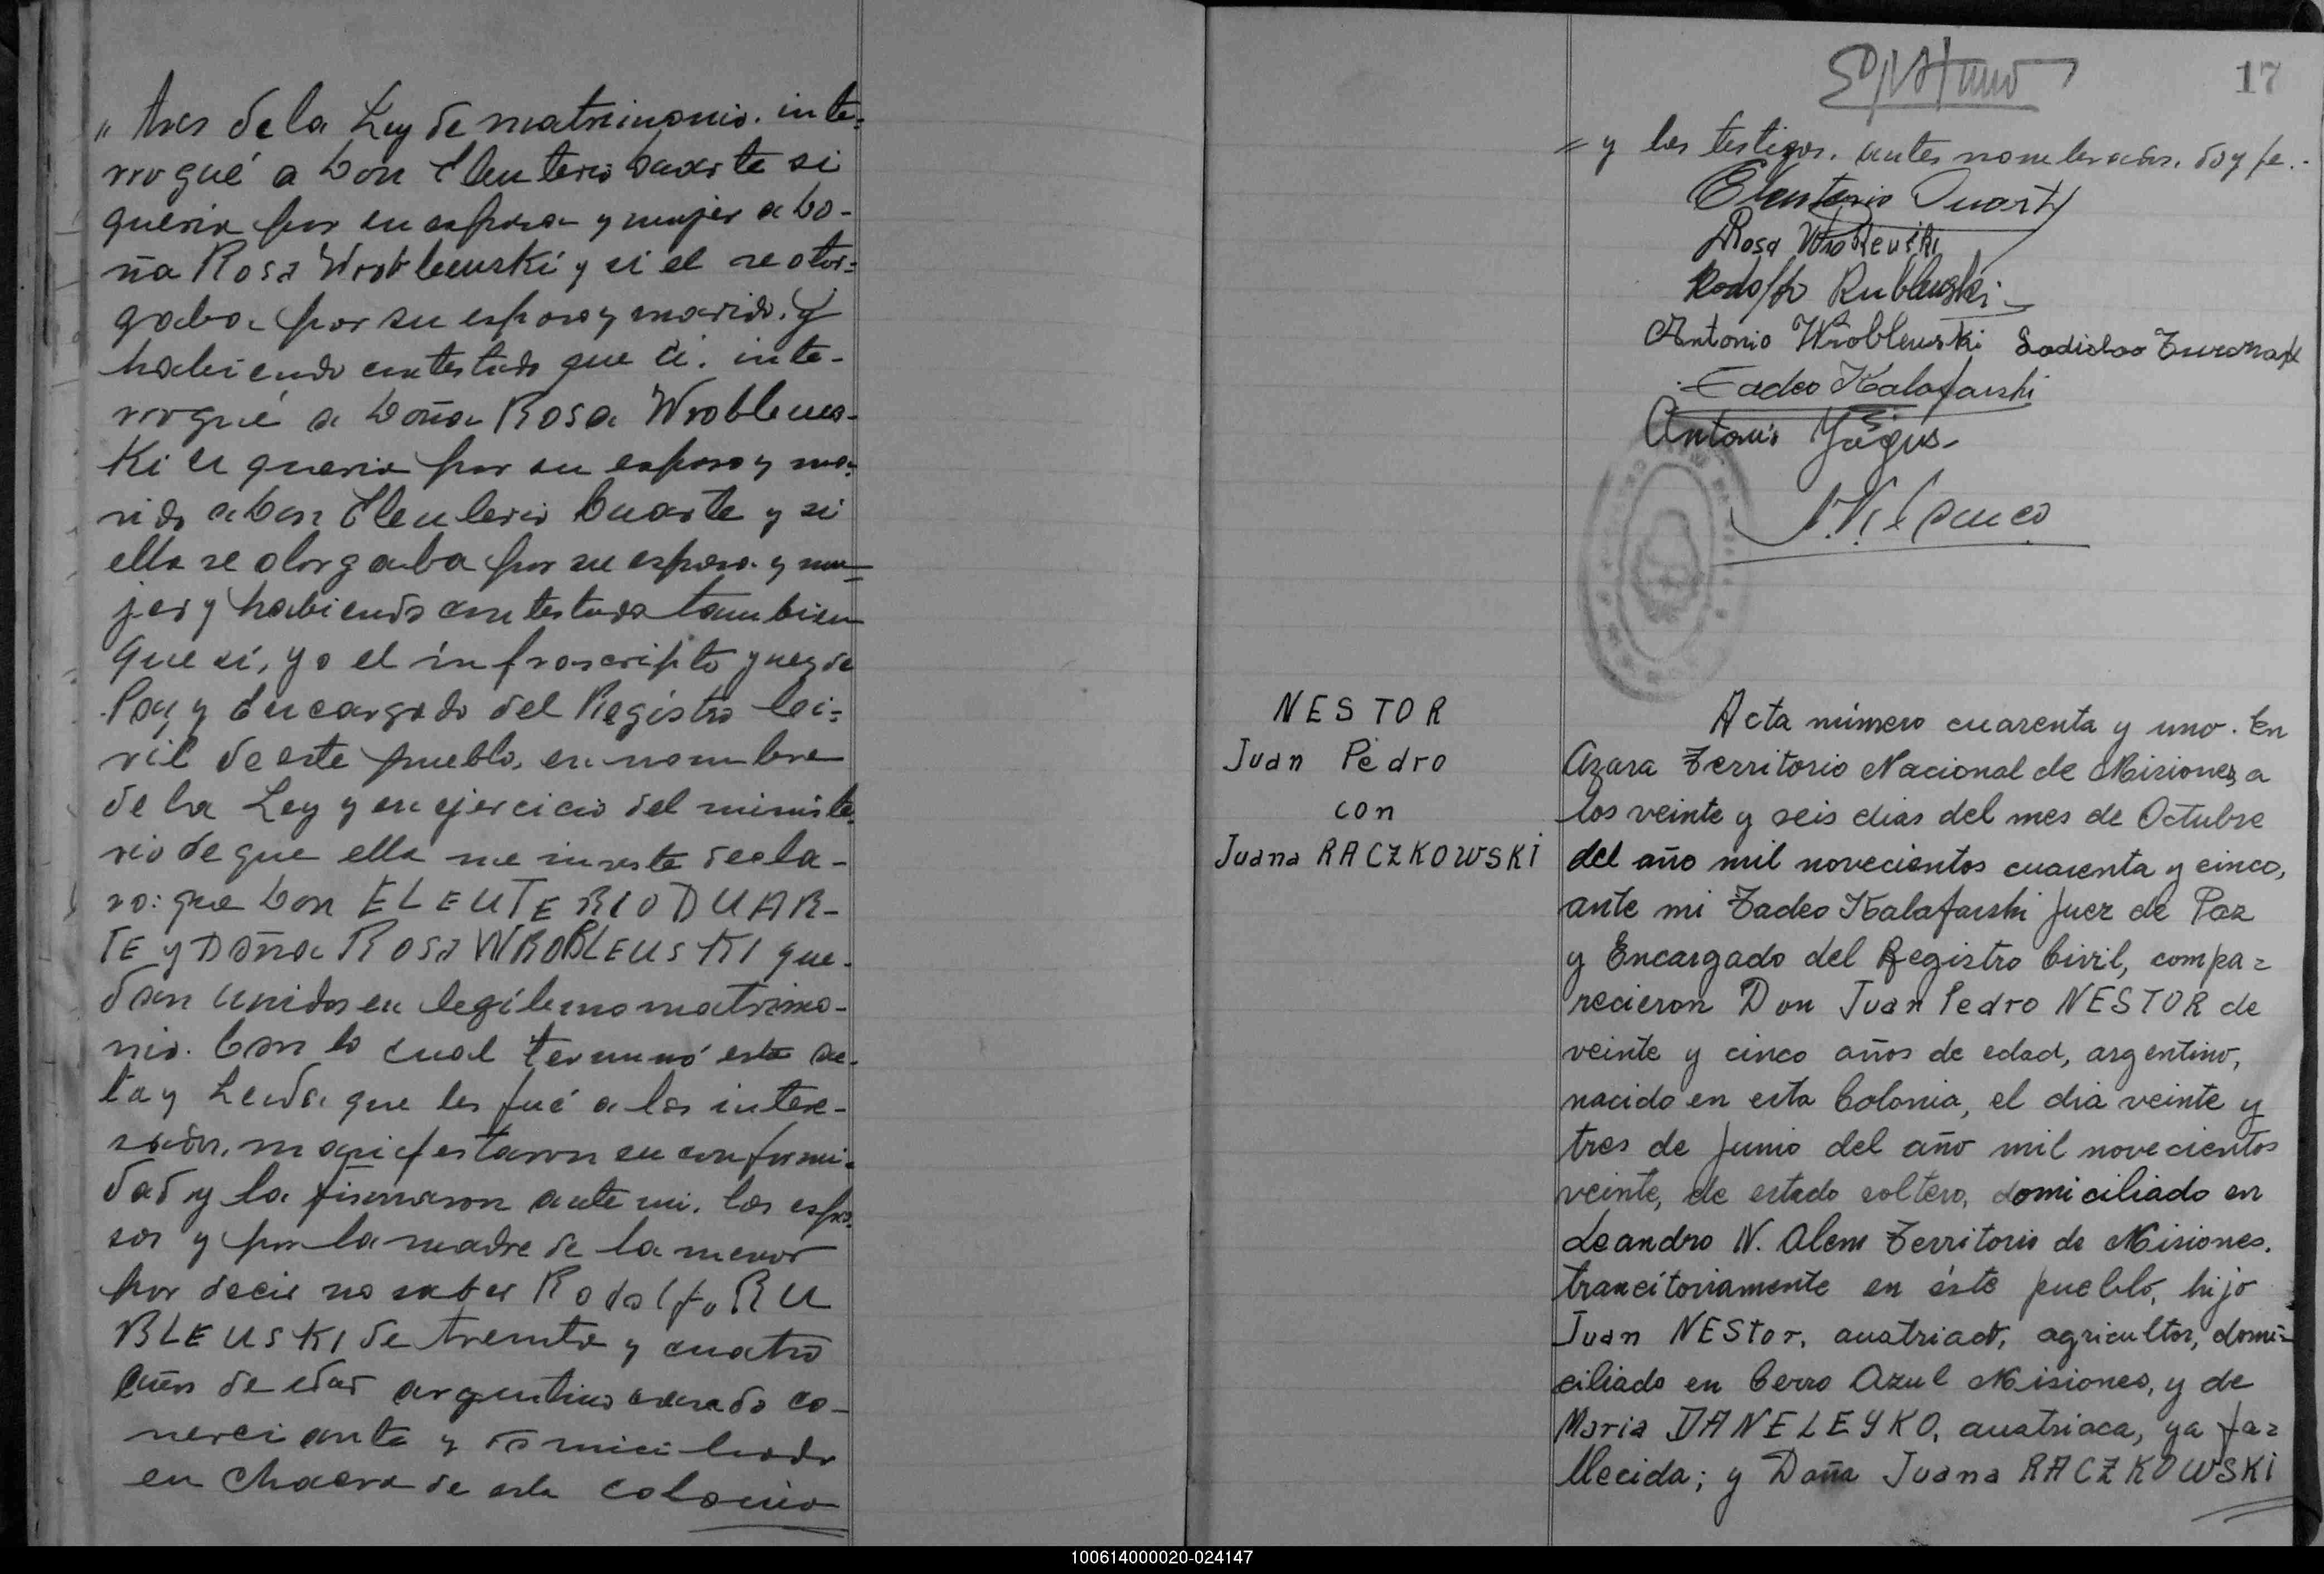 " tres de la Ley de matrimonio. inte=
rrogué a Don Eleuterio Duarte si
queria por su esposa y mujer a Do-
ña Rosa Wroblewski y si el se otor=
gaba por su esposo y marido. Y
habiendo contestado que si. inte-
rrogué a Doña Rosa Wroblews-
ki si queria por su esposo y ma-
rido a Don Eleuterio Duarte y si
ella se otorgaba por su esposa y mu=
jer y habiendo contestado tambien
que sí, yo el infrascripto juez de
Paz y Encargado del Registro Ci=
vil de este pueblo, en nombre
de la Ley y en ejercicio del ministe
rio de que ella me inviste decla-
ro: que Don ELEUTERIO DUAR-
TE y Doña ROSA WROBLEUSKI que-
dan unidos en legítimo matrimo-
nio. Con lo cual terminó este ac-
ta y Leida que les fué a los intere-
sados, manifestaron su conformi=
dad y la firmaron ante mi. los espo
sos y por la madre de la menor
por decir no saber Rodolfo RU
BLEUSKI de treinta y cuatro
años de edad argentino casado co-
merciante y domiciliado
en chacra de esta colonia
17
= y los testigos. antes nombrados. doy fe.-
Eleuterio Duarte
Rosa Wroblewski
Rodolfo Rubleuski
Antonio Wroblewski Ladislao
Tadeo Kalafarski
Antonio
NESTOR
Juan Pedro
con
Juana RACZKOWSKI
Acta número cuarenta y uno. En
Azara Territorio Nacional de Misiones, a
los veinte y seis dias del mes de Octubre
del año mil novecientos cuarenta y cinco,
ante mi Tadeo Kalafarski Juez de Paz
y Encargado del Registro Civil, compa=
recieron Don Juan Pedro NESTOR de
veinte y cinco años de edad, argentino,
nacido en esta Colonia, el dia veinte y
tres de Junio del año mil novecientos
veinte, de estado soltero, domiciliado en
Leandro N. Alem Territorio de Misiones.
trancitoriamente en éste pueblo, hijo
Juan NEStor, austriaco, agricultor, domi=
ciliado en Cerro Azul Misiones, y de
Maria DANELEYKO, austriaca, ya fa=
llecida; y Doña Juana RACZKOWSKI
100614000020-024147